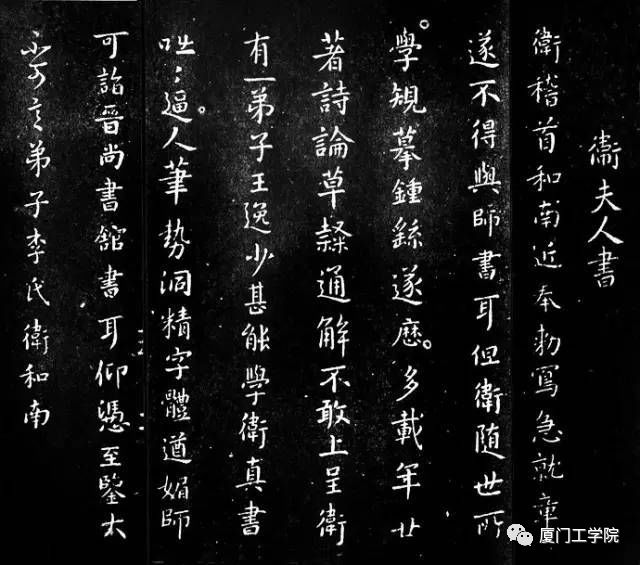 衛夫人書
衛稽首和南近奉勑寫急就章
遂不得與師書耳但衛随世所
學規摹鍾繇遂歷多載年廿
著詩論草隸通解不敢上呈衛
有一弟子王逸少甚能學衛真書
咄〻逼人筆勢洞精字體遒媚師
可詣晉尚書舘書耳仰憑至鑒大
不可言弟子李氏衛和南
厦门工学院